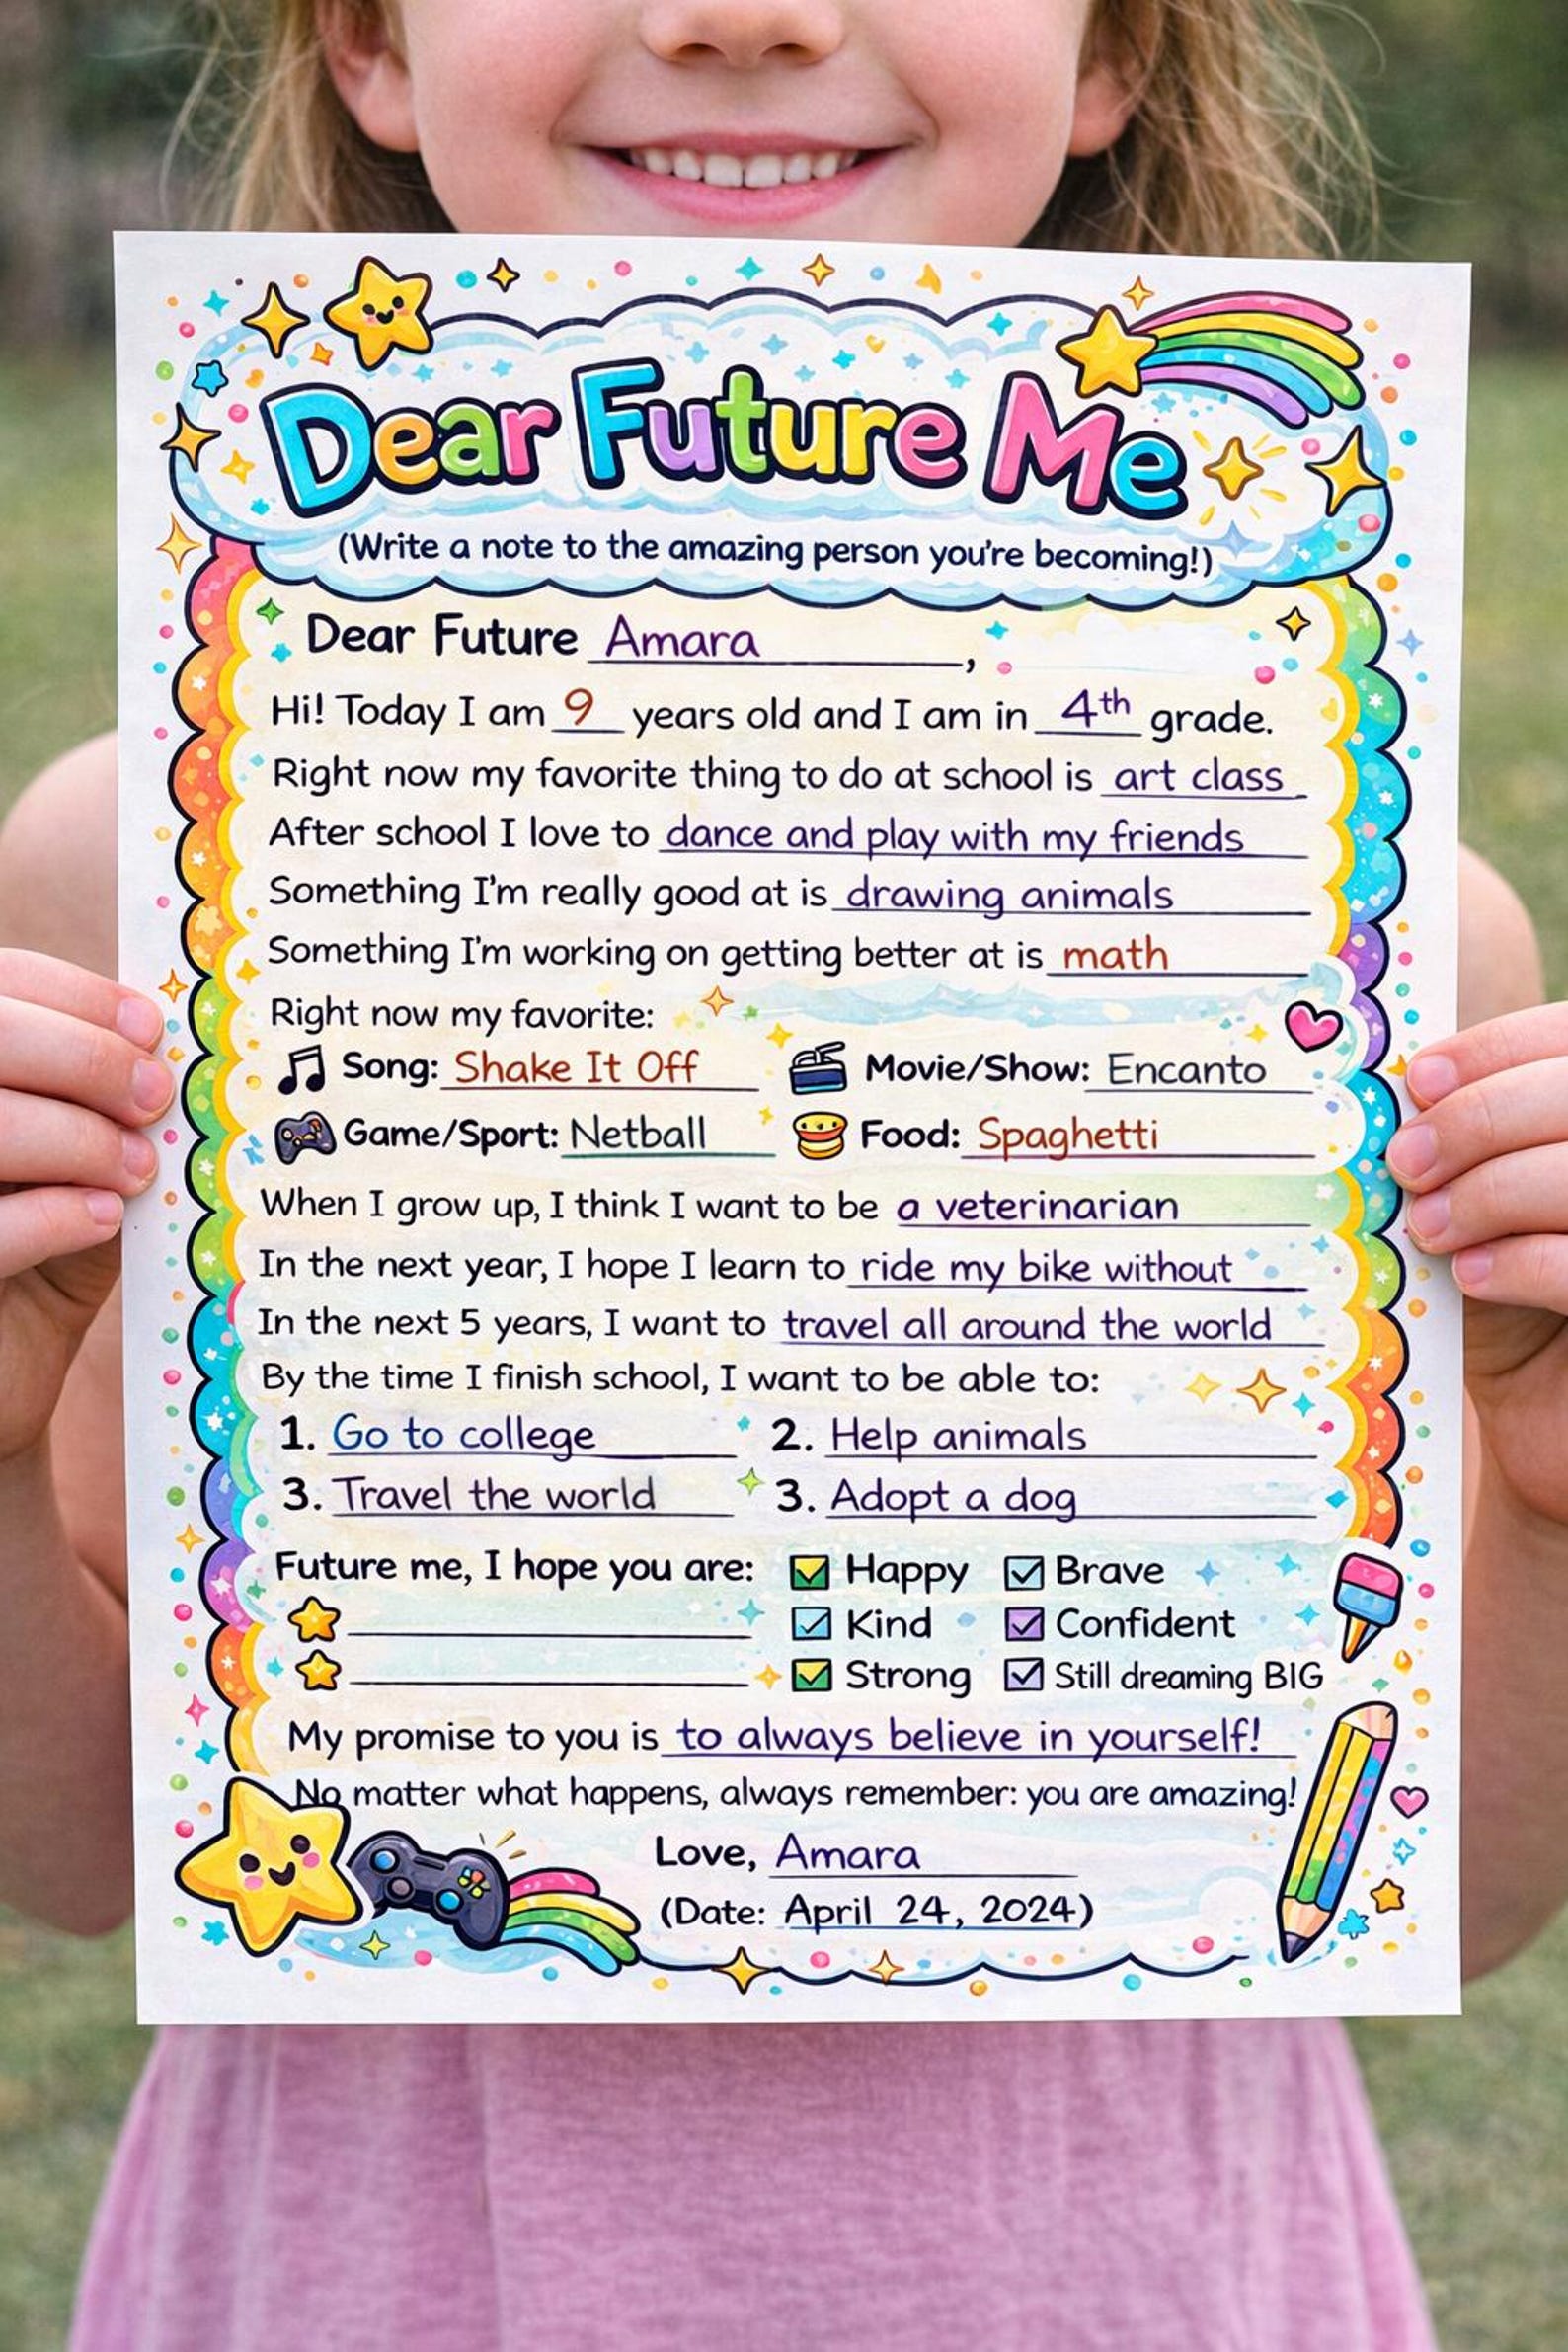 Dear Future Me
(Write a note to the amazing person you're becoming!)
Dear Future Amara,
Hi! Today I am 9 years old and I am in 4th grade.
Right now my favorite thing to do at school is art class
After school I love to dance and play with my friends
Something I'm really good at is drawing animals
Something I'm working on getting better at is math
Right now my favorite:
Song: Shake It Off Movie/Show: Encanto
Game/Sport: Netball Food: Spaghetti
When I grow up, I think I want to be a veterinarian
In the next year, I hope I learn to ride my bike without
In the next 5 years, I want to travel all around the world
By the time I finish school, I want to be able to:
1. Go to college 2. Help animals
3. Travel the world 3. Adopt a dog
Future me, I hope you are: Happy Brave
Kind Confident
Strong Still dreaming BIG
My promise to you is to always believe in yourself!
No matter what happens, always remember: you are amazing!
Love, Amara
(Date: April 24, 2024)